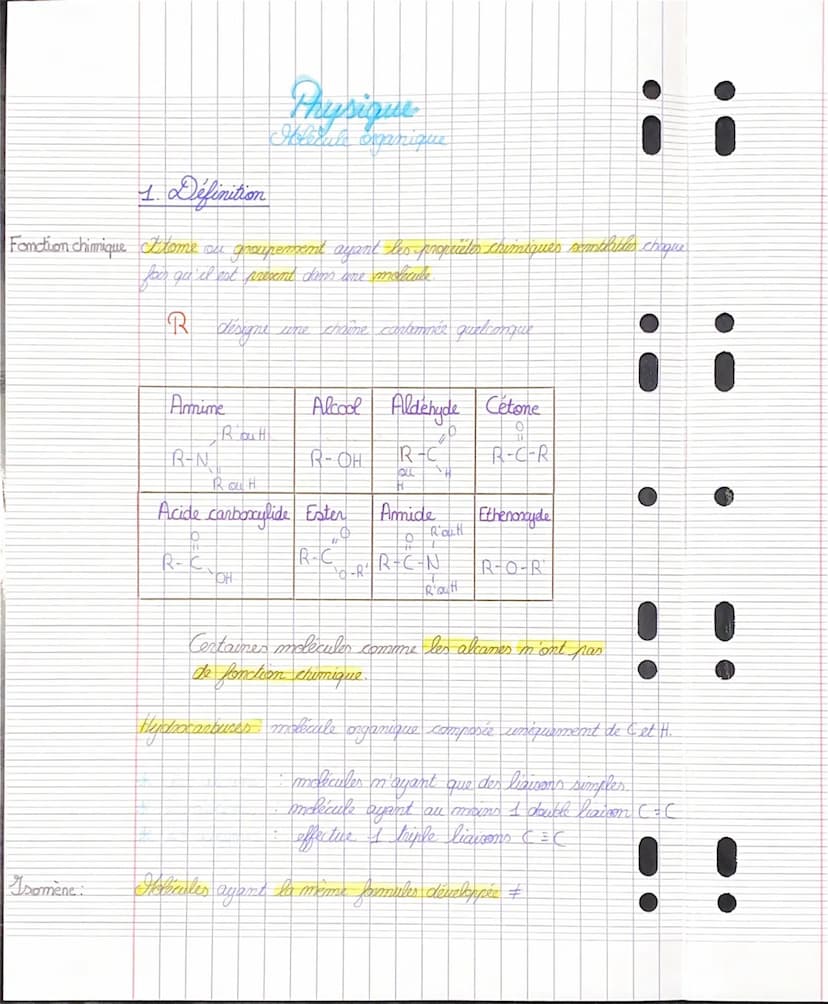 Physique
Molécule organique
1. Définition
Fonction chimique Atome ou groupement ayant les propriétés chimiques semblables chaque
fois qu'il est présent dans une molécule
R désigne une chaîne carbonnée quelconque
Amine Alcool Aldéhyde Cétone
R' ou H O O
R-N R-OH R-C R-C-R
ou H
R ou H H
Acide carboxylide Ester Amide Ethenoxyde
O O O R' ou H
R-C R-C R-C-N R-O-R'
OH O-R' R" ou H
Certaines molécules comme les alcanes n'ont pas
de fonction chimique.
Hydrocarbures: molécule organique composée uniquement de C et H.
: molécules n'ayant que des liaisons simples.
: molécule ayant au moins 1 double liaison C=C
: effectue 1 triple liaisons C≡C
Isomène: Molécules ayant la même formules développée ≠